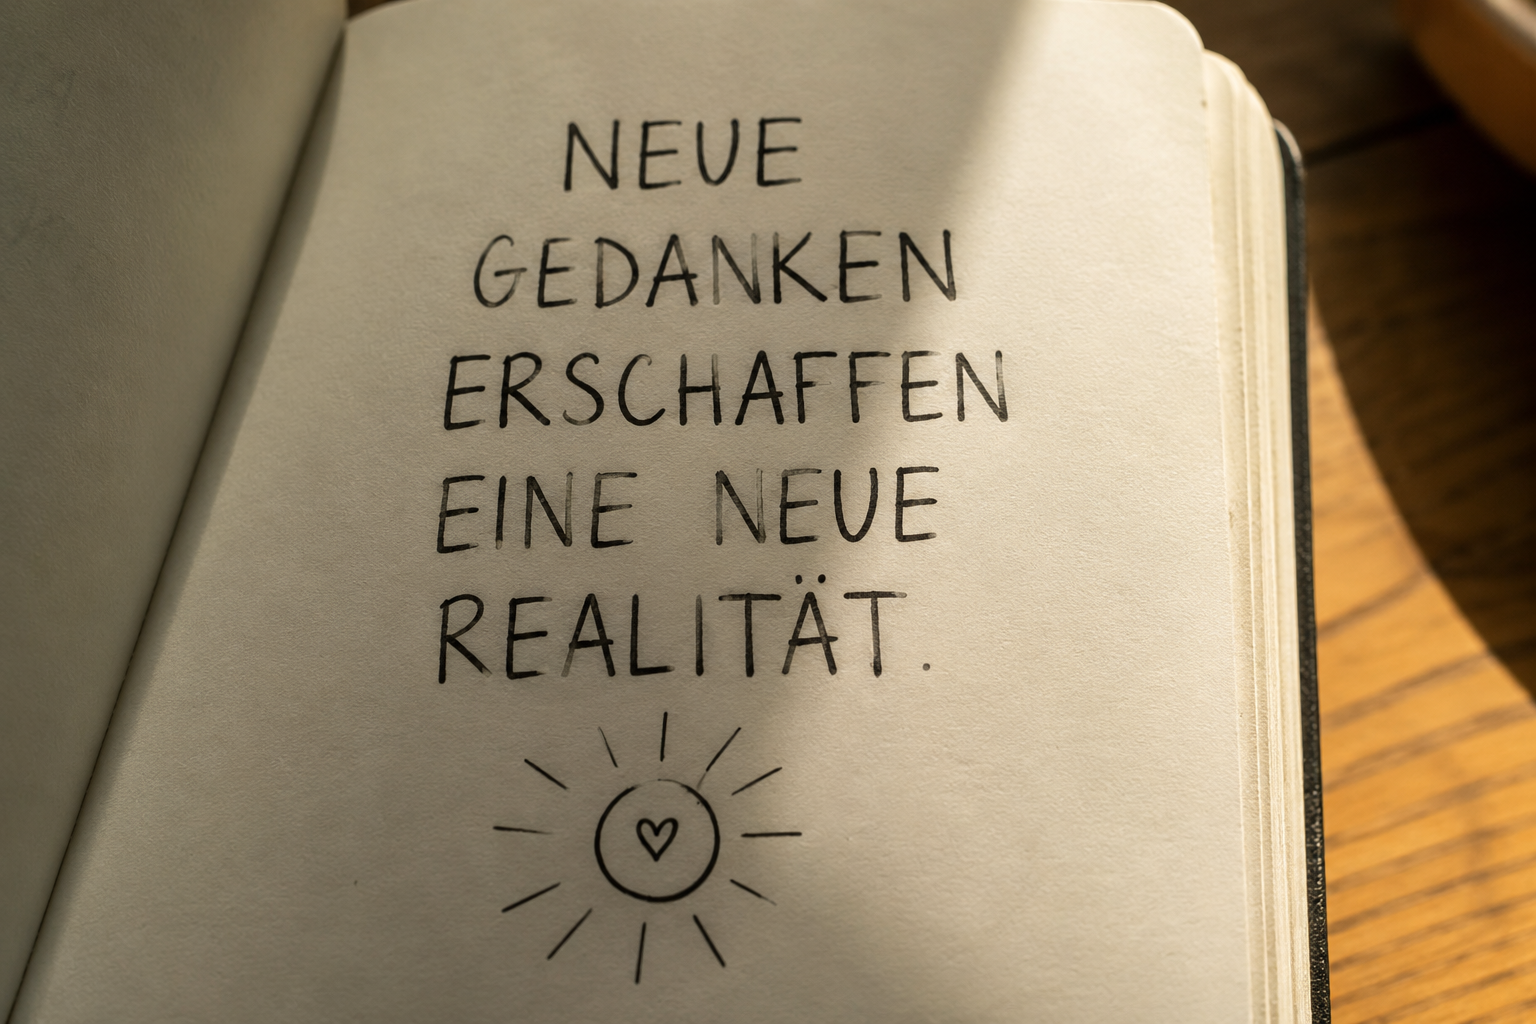 NEUE
GEDANKEN
ERSCHAFFEN
EINE NEUE
REALITÄT.